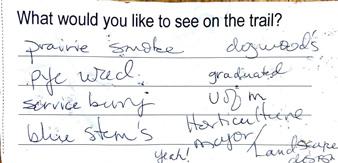 What would you like to see on the trail?
prairie smoke dogwood's
pye weed graduated
service berry U of M
blue stem's Horticulture
major/Landscape
Yeah!